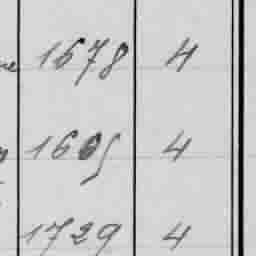 1678 4
1605 4
1729 4